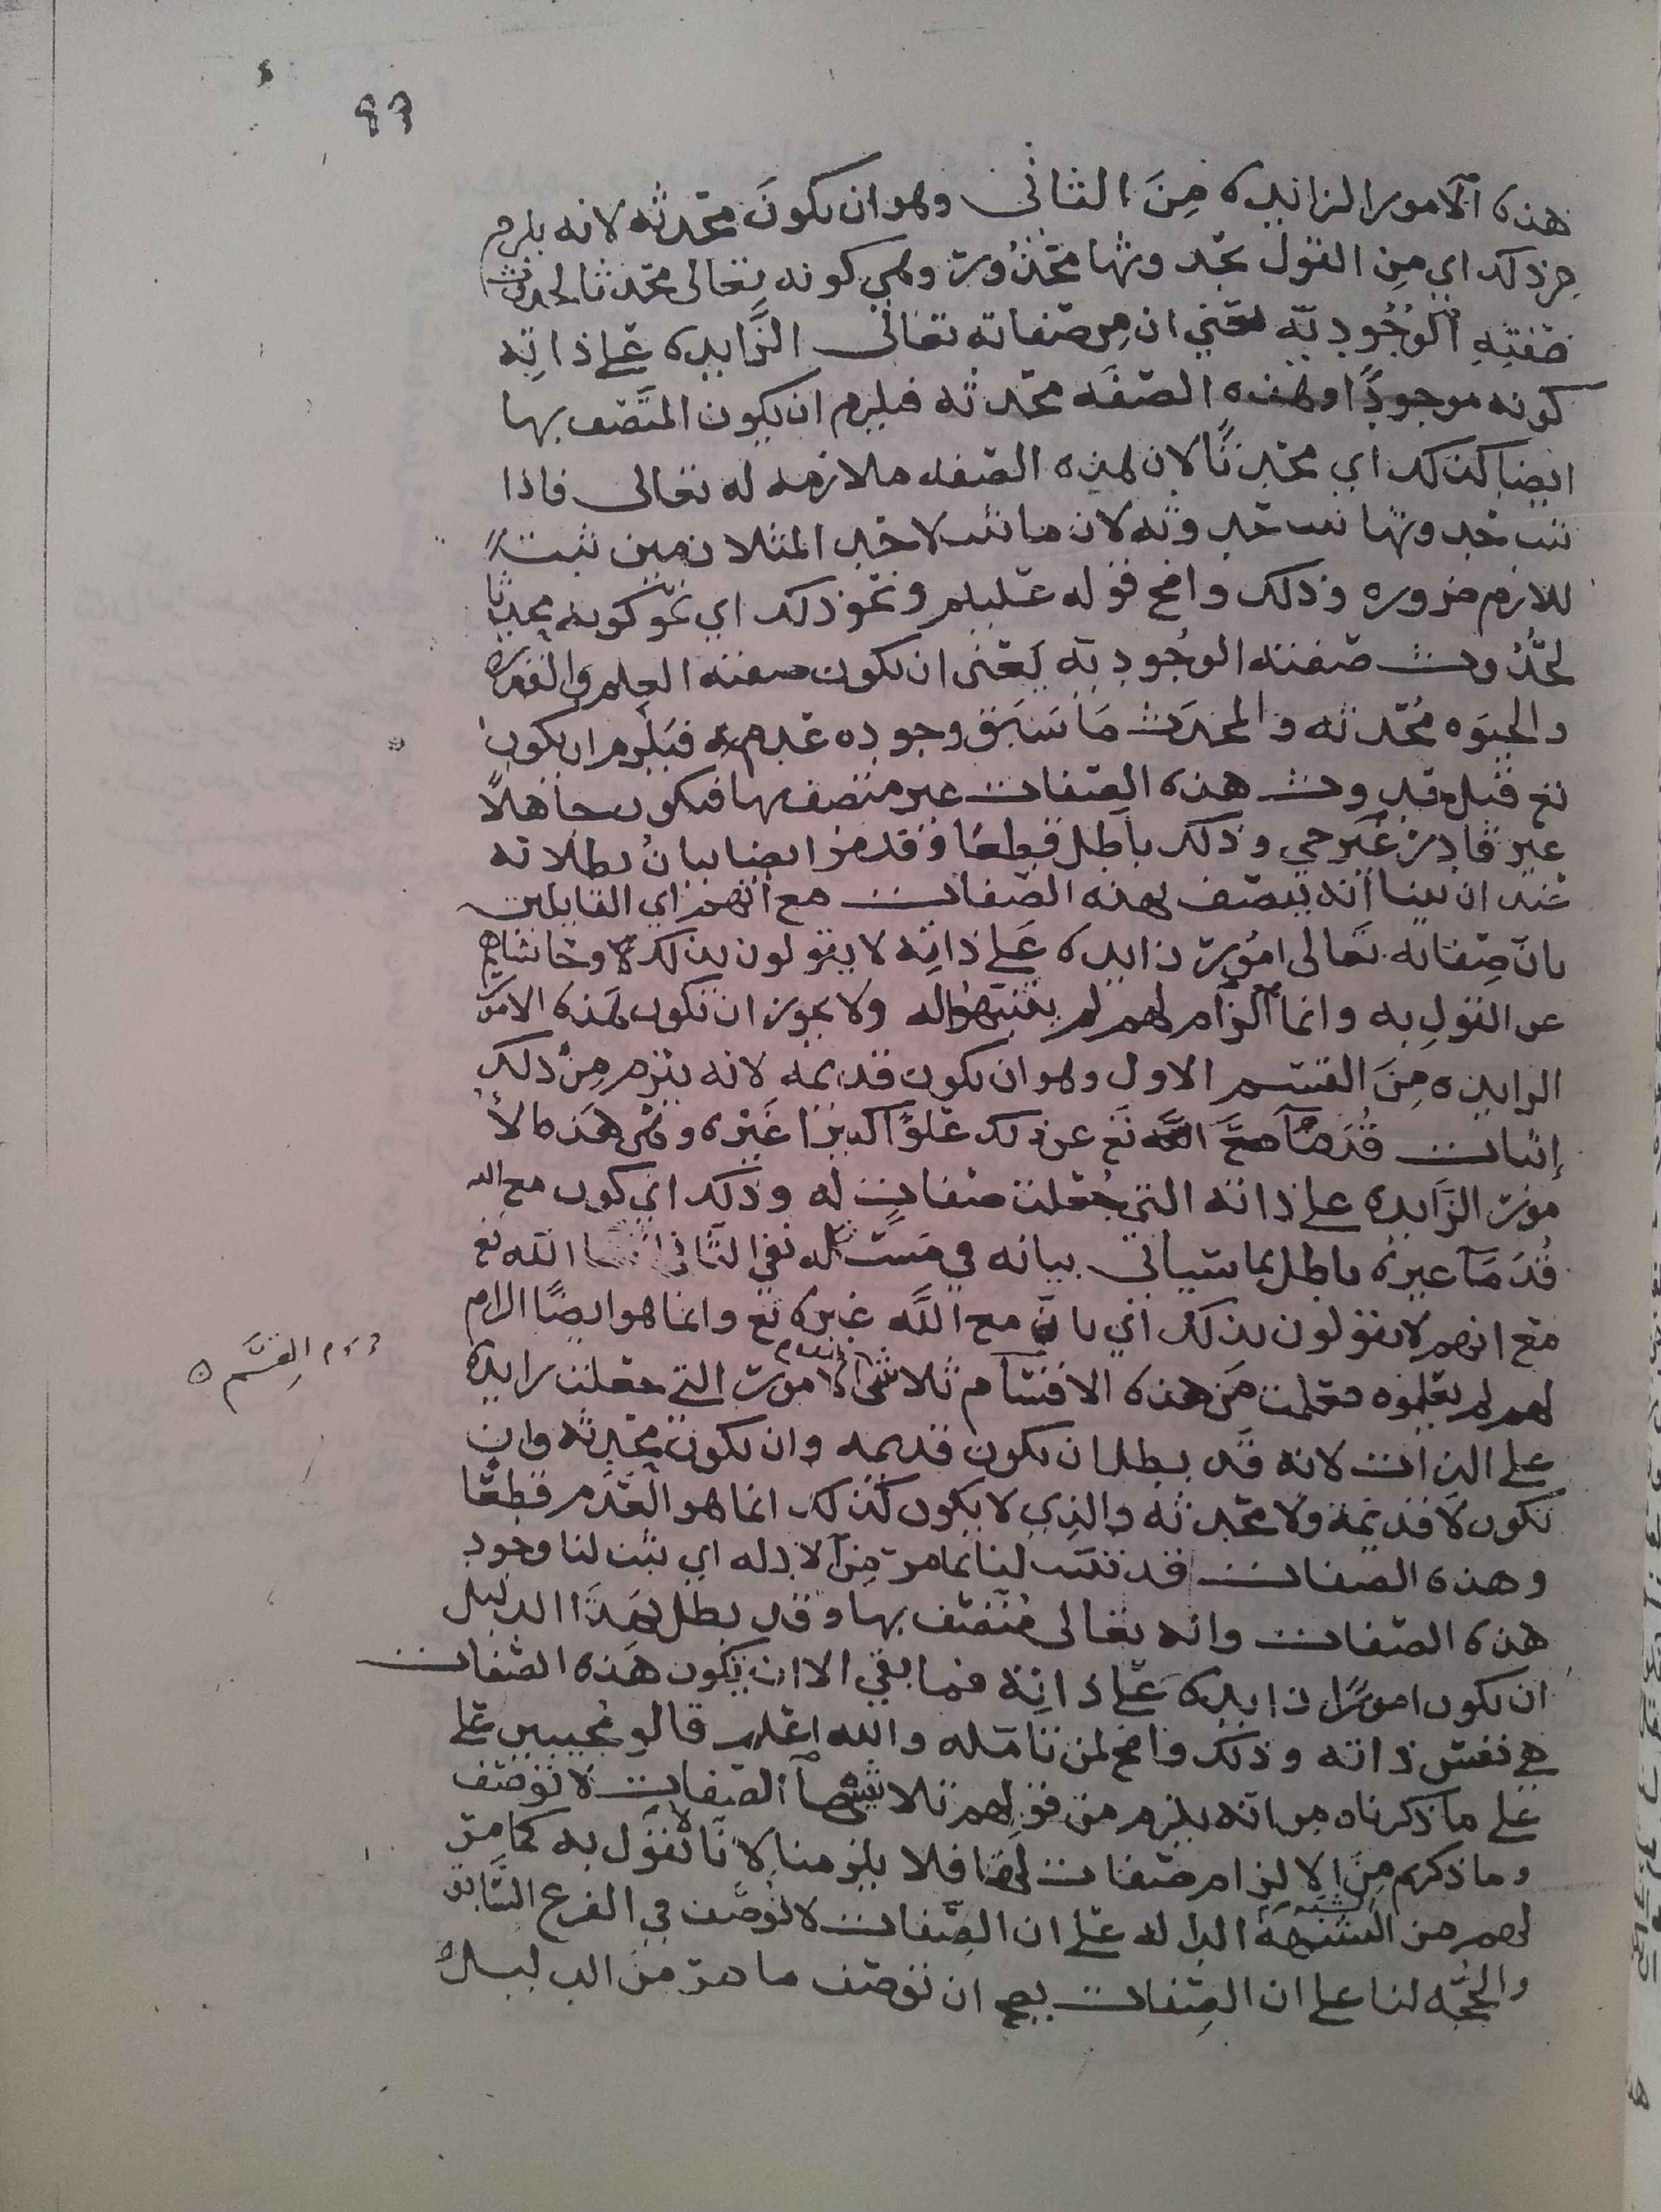 ٩٦
هذه الامور الزائده مِنَ الثاني وهو ان تكونَ محدثه لانه يلزم
من ذلك اي مِن القول بحدوثها محذُور وهي كونه تعالى محدثا لحدوث
صفتِهِ الوُجُوديّه يعني ان مِن صفاته تعالى الزَّايده عَلى ذاتِه
كونه موجودًا وهذه الصفَه محدثه فيلزم ان يكون المتَّصف بها
ايضا كذلك اي محدثًا لان هذه الصفه ملازمه له تعالى فاذا
ثبت حدوثها ثبت حدوثه لان ما ثبت لاحد المتلازمين ثبت
للازم ضروره وذلك واضح قوله عليلم ونحو ذلك اي نحو كونه محدثا
لحُدُوث صفته الوجُوديّه يَعني ان تكون صفته العِلم والقدره
والحيَوه مُحدثه والمحدَث مَا سَبَق وجوده عَدمه فيَلزم ان يكون
تع قبل حدوث هذه الصّفات غير متصف بها فيكون جاهلًا
غير قادرٍ غَير حي وذلك باطل قطعًا وقد مر ايضا بيانُ بطلانه
عند ان بينا انه يتصف بهذه الصّفات مع انّهم اي القايلين
بانّ صِفاته تعالى امُورٌ زايده عَلى ذاتِه لا يقولون بذلك وحاشاهم
عن القول به وانما الزام لهم لم يتنبّهوا له ولا يجوز ان تكون هذه الامور
الزايده مِنَ القسم الاول وهو ان تكون قديمه لانه يلزم مِن ذلك
إثبات قُدَمَآ معَ الله تع عن ذلك علوًّا كبيرًا غَيْره وهي هذه الأ
مور الزَايده على ذاته التي جُعلت صفاتٍ له وذلك اي كون مع الله
قُدَمَآ غيره باطل بما سياتي بيانه في مَسئله نفي الثاني الله تع
مَع انهم لا يقولون بذلك اي بانّ مع اللَّه غيره تع وانما هو ايضًا الزام
لهم لم يعلموه فعلمت مِن هذه الاقسَام ثلاشي الامور التي جعلت زايده
على الذات لانه قد بطل ان تكون قديمه وان تكون محدثه وان
تكون لا قديمة ولا محدثه والذي لا يكون كذلك انما هو العَدَم قطعًا
وهذه الصفات قد ثبتت لنا بما مرّ مِن الادله اي ثبت لنا وجود
هذه الصّفات وانه تعالى مُتّصف بها وقد بطل بهذا الدليل
ان تكون امورًا زايده عَلى ذاتِه فما بقي الا ان تكون هذه الصّفات
هي نفسّ ذاته وذلك واضح لمن تامّله والله اعلم قالو مُجيبين على
على ما ذكرناه من انه يلزم من قولهم الصّفات لا توصَف
وما ذكرتم مِنَ الالزام صَفات لها فلا يلزمنا لانّا لا نقول به كما مرّ
لهم من الشبهَة الداله على ان الصّفات لا توصَّف في الفرع السَّابق
والحجّه لنا على ان الصّفات يصح ان توصّف ما مرّ مِن الدليل
القِسَم